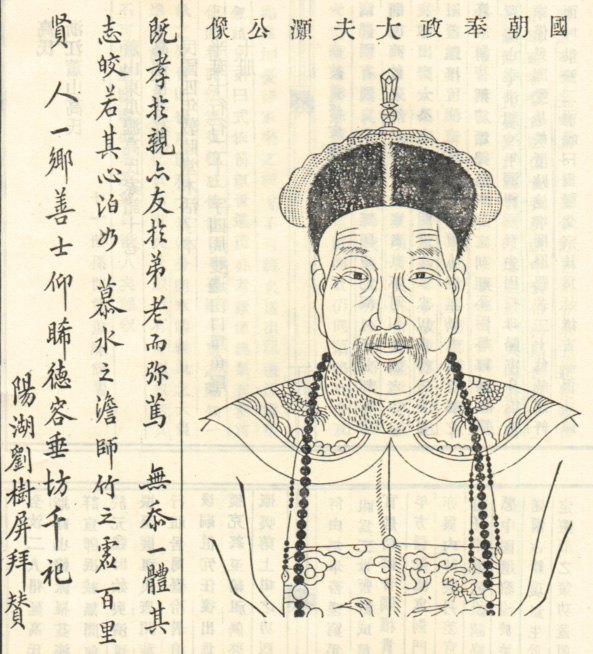 國朝奉政大夫灝公像
既孝扵親亦友扵弟老而弥篤 無忝一體其
志皎若其心泊如 慕水之澹師竹之虛百里
賢 人一鄉善士仰睎德容垂坊千祀
陽湖劉樹屏拜贊